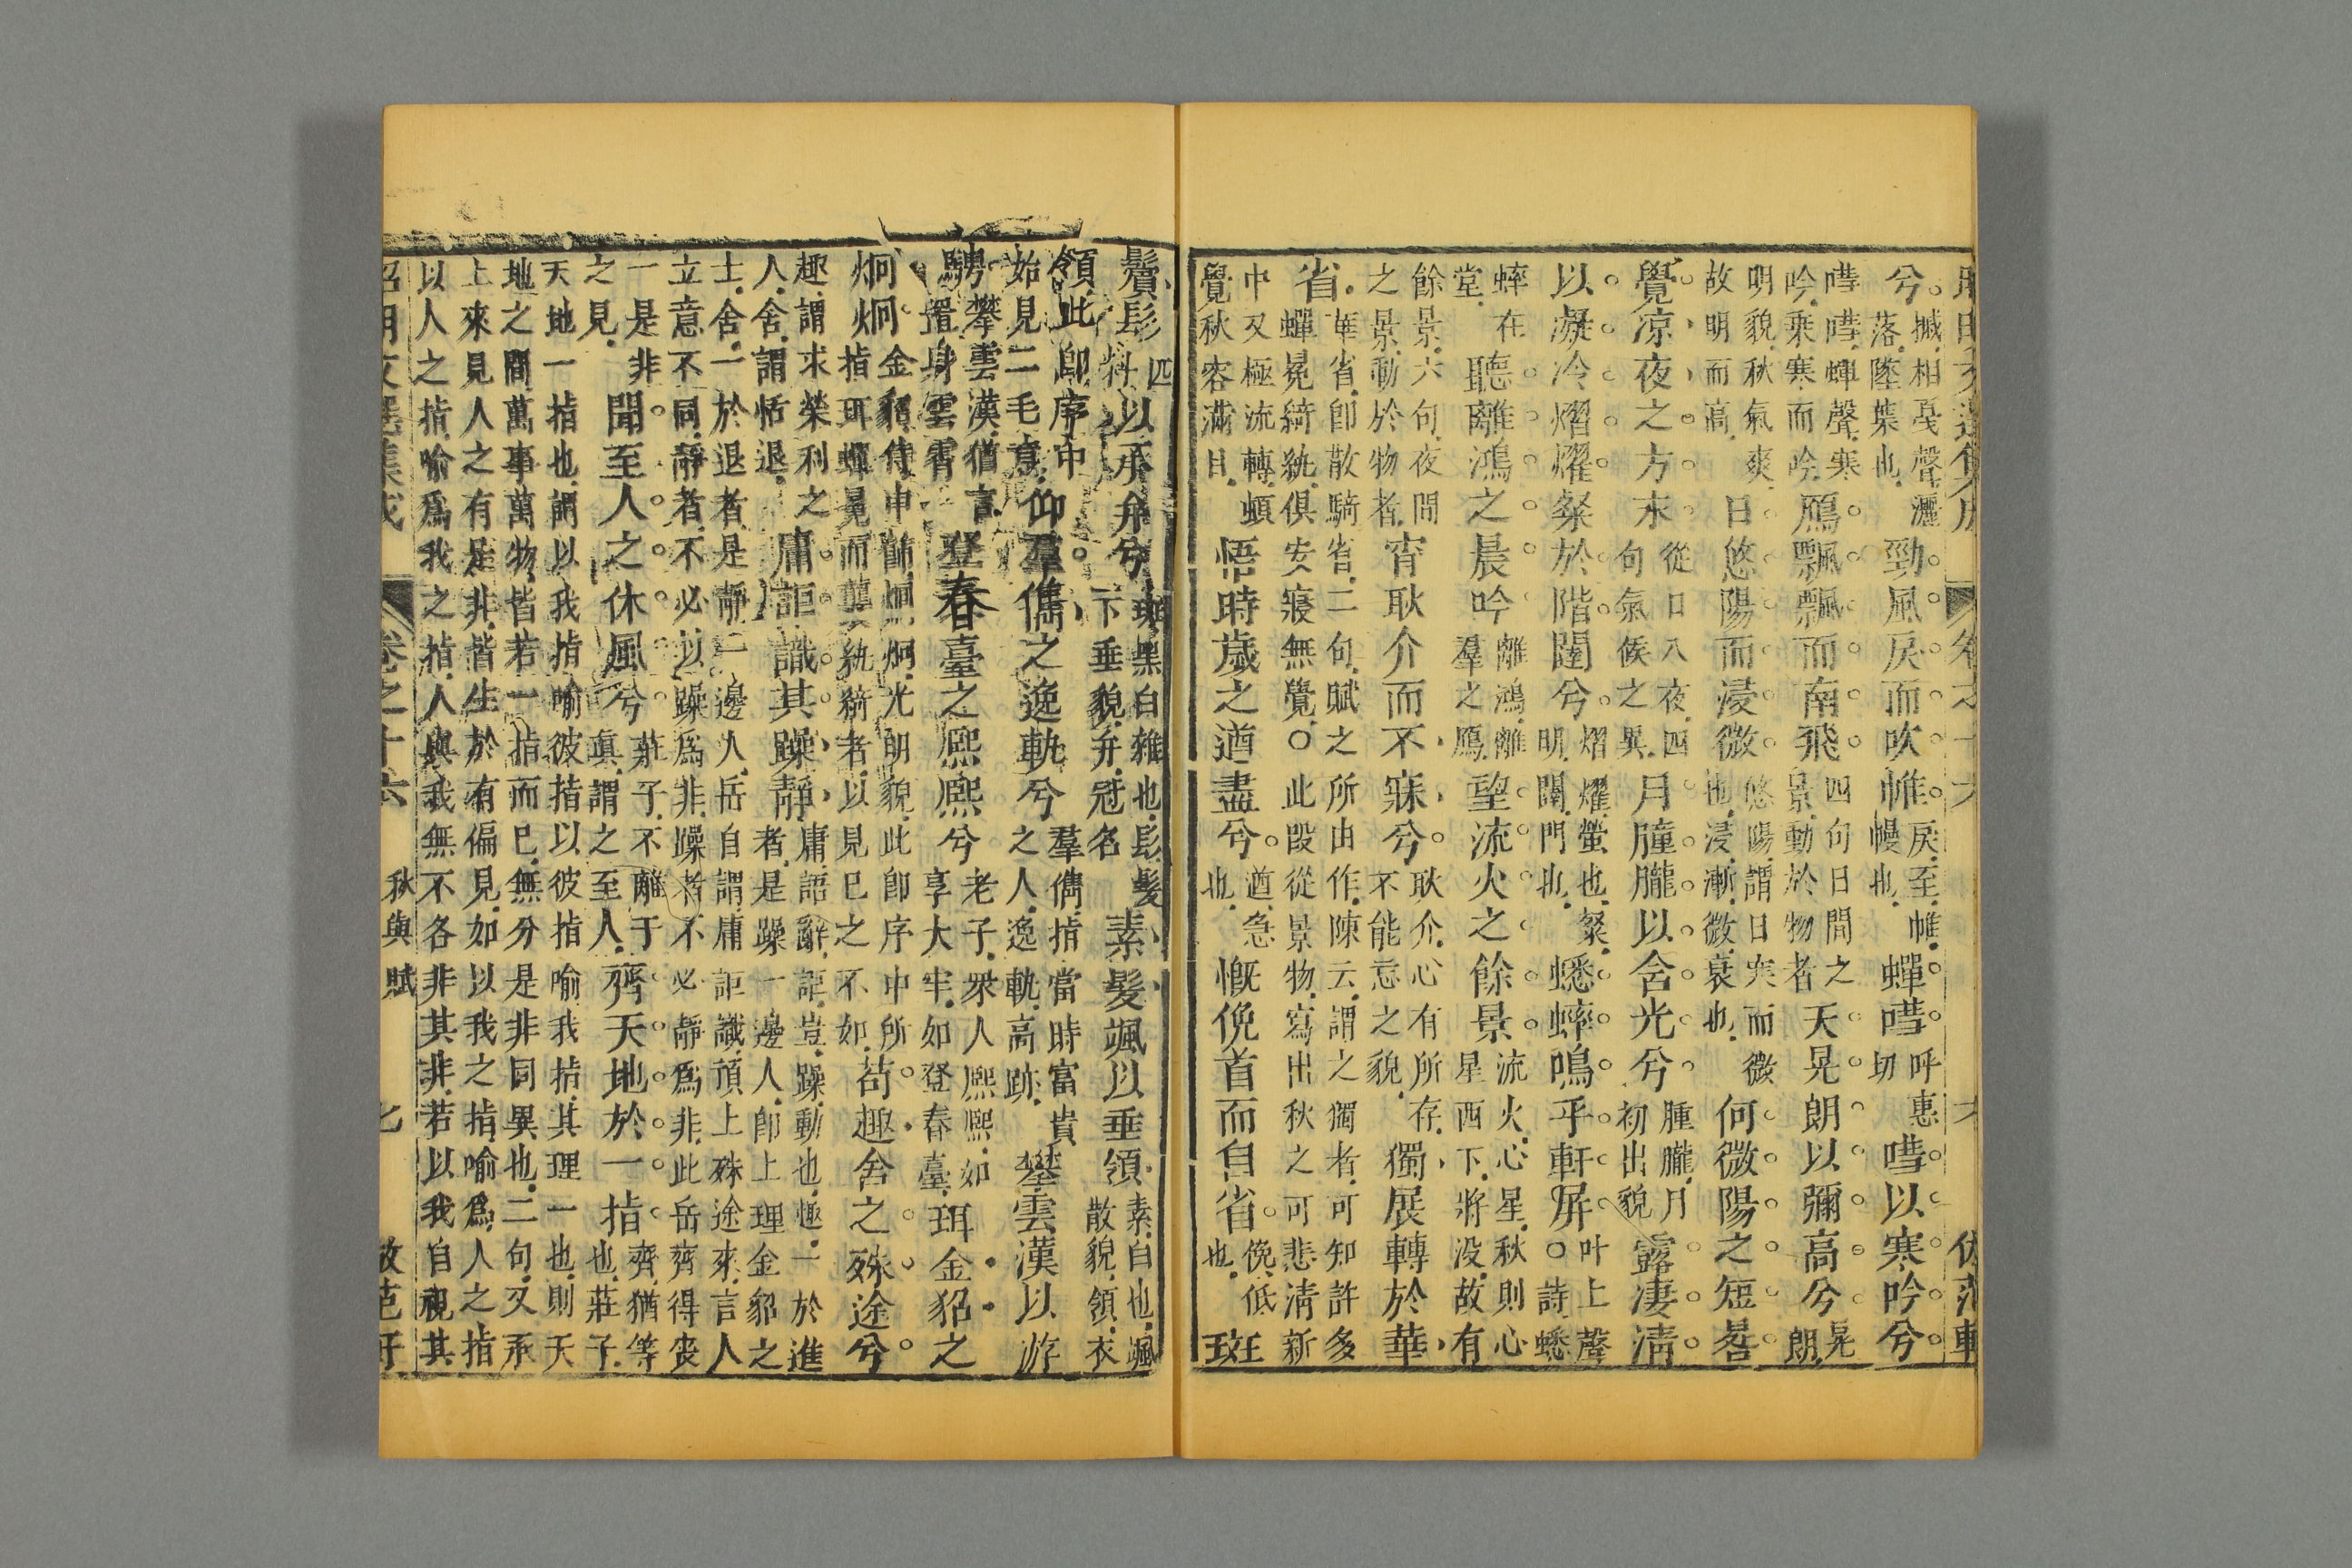 兮撼相戞聲灑落墜葉也勁風戾而吹帷戾至帷幔也蟬嘒呼惠切嘒以寒吟兮
嘒嘒蟬聲寒吟乘寒而吟鴈飄飄而南飛四句日間之景動於物者天晃朗以彌高兮晃朗
明貌秋氣爽故明而高日悠陽而浸微悠陽謂日寒而微也浸漸微衰也何微陽之短晷
覺凉夜之方末從日入夜四句氣候之異月朣朧以含光兮朣朧月初出貌露凄清
以凝冷熠燿粲於階闥兮熠燿螢也粲明闥門也蟋蟀鳴乎軒屏叶上聲○詩蟋
蟀在堂聽離鴻之晨吟離鴻離羣之鴈望流火之餘景流火心星秋則心星西下將没故有
餘景六句夜間之景動於物者宵耿介而不寐兮耿介心有所存不能忘之貌獨展轉於華
省華省卽散騎省二句賦之所由作陳云謂之獨者可知許多蟬冕綺紈俱安寢無覺○此段從景物寫出秋之可悲清新
中又極流轉頓覺秋容滿目悟時歲之遒盡兮遒急也慨俛首而自省俛低也斑
鬢髟四料以承弁兮斑黑白雜也髟髮下垂貌弁冠名素髮颯以垂領素白也颯散貌領衣
領此卽序中始見二毛意仰羣儁之逸軌兮羣儁指當時富貴之人逸軌高跡攀雲漢以游
騁攀雲漢猶言置身雲霄登春臺之熙熙兮老子衆人熙熙如享大牢如登春臺珥金貂之
炯炯金貂侍中飾炯炯光明貌此卽序中所指珥蟬冕而襲紈綺者以見已之不如苟趣舍之殊途兮
趣謂求榮利之人舍謂恬退庸詎識其躁靜庸語辭詎豈躁動也極一於進者是躁一邊人卽上理金貂之
士舍一於退者是靜一邊人岳自謂庸詎識頂上殊途來言人立意不同靜者不必以躁爲非躁者不必靜爲非此岳齊得丧
一是非之見聞至人之休風兮莊子不離于眞謂之至人齊天地於一指齊猶等也莊子
天地一指也謂以我指喻彼指以彼指喻我指其理一也則天地之間萬事萬物皆若一指而已無分是非同異也二句又承
上來見人之有是非皆生於有偏見如以我之指喻爲人之指以人之指喻爲我之指人與我無不各非其非若以我自視其
卷之十六 秋興賦 七